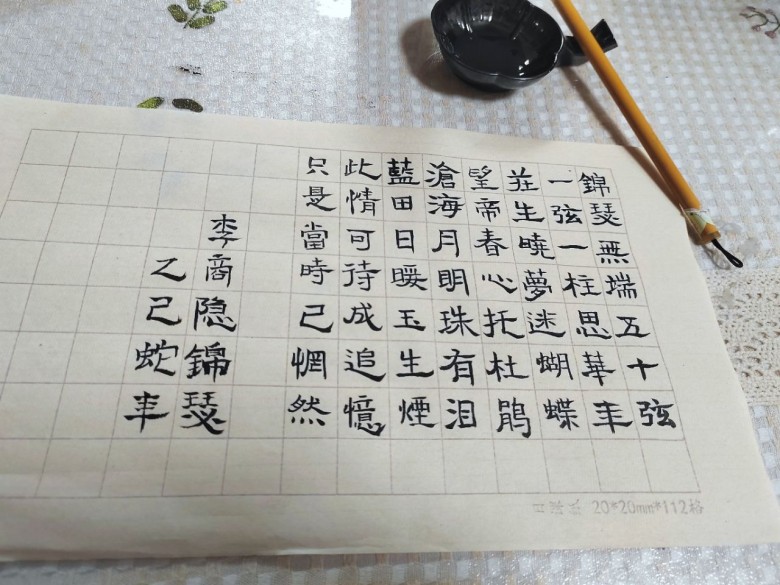 錦瑟無端五十弦
一弦一柱思華年
莊生曉夢迷蝴蝶
望帝春心托杜鹃
滄海月明珠有泪
藍田日暖玉生煙
此情可待成追憶
只是當時已惘然
李商隐錦瑟
乙巳蛇年
20*20mm*112格